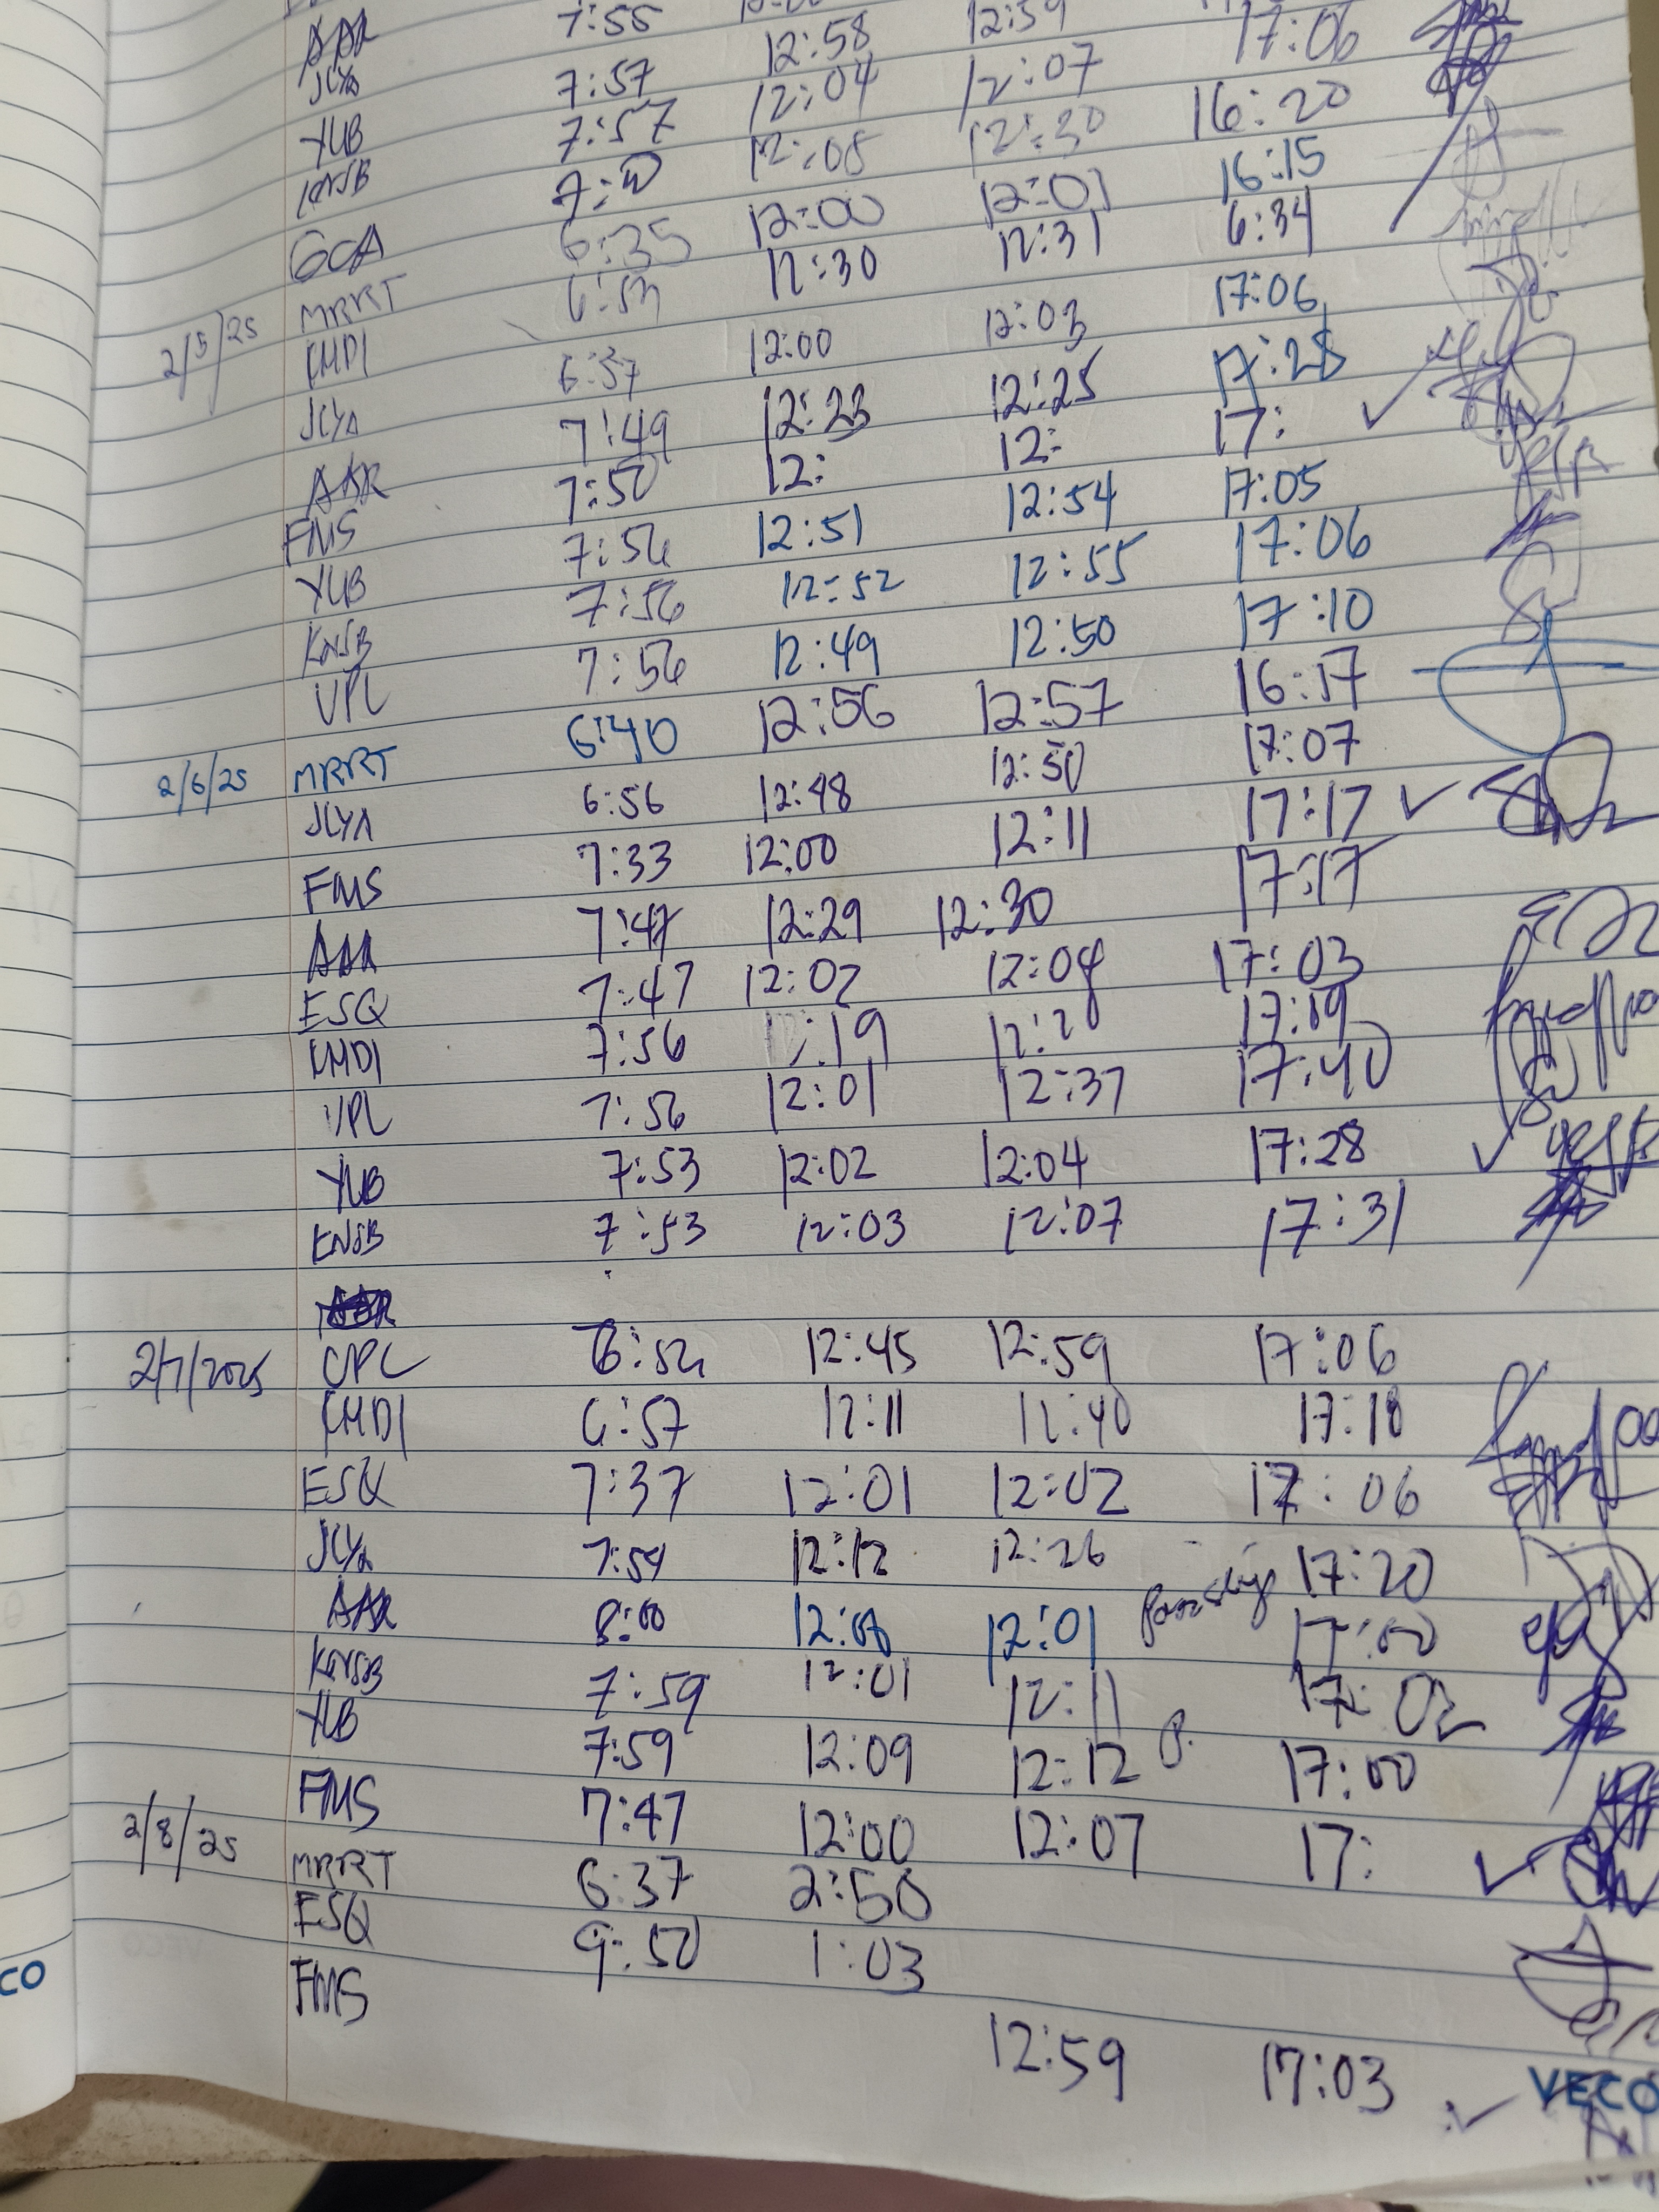 AAR 7:55 12:59
JLYA 7:57 12:58 12:07 17:06
YUB 7:57 12:04 12:30 16:20
KNSB 12:05 16:15
GCA 6:35 12:00 12:01 6:34
2/5/25 MRRT 6:53 12:30 12:31 17:06
KMDI 6:37 12:00 12:03 17:28
JLYA 7:49 12:23 12:25 17:
AAR 7:50 12: 12: 17:05
FMS 7:56 12:51 12:54 17:06
YUB 7:56 12:52 12:55 17:10
KNSB 7:56 12:49 12:50 16:17
VPL
2/6/25 MRRT 6:40 12:56 12:57 17:07
JLYA 6:56 12:48 12:50 17:17
FMS 7:33 12:00 12:11 17:17
AAR 7:47 12:29 12:30
ESQ 7:47 12:02 12:08 17:03
KMDI 7:56 :19 17:19
VPL 7:56 12:01 12:37 17:40
YUB 7:53 12:02 12:04 17:28
KNSB 7:53 12:03 12:07 17:31
2/7/2025 VPL 6:56 12:45 12:59 17:06
KMDI 6:57 12:11 12:40 17:18
ESQ 7:37 12:01 12:02 17:06
JLYA 7:59 12:12 12:26 17:20
AAR 8:00 12:00 12:01 pass slip 17:00
KNSB 7:59 12:01 12:11 17:02
YUB 7:59 12:09 12:12 P. 17:00
FMS 7:47 12:00 12:07 17:
2/8/25 MRRT 6:37 2:50
ESQ 9:50 1:03
FMS 12:59 17:03
CO
VECO